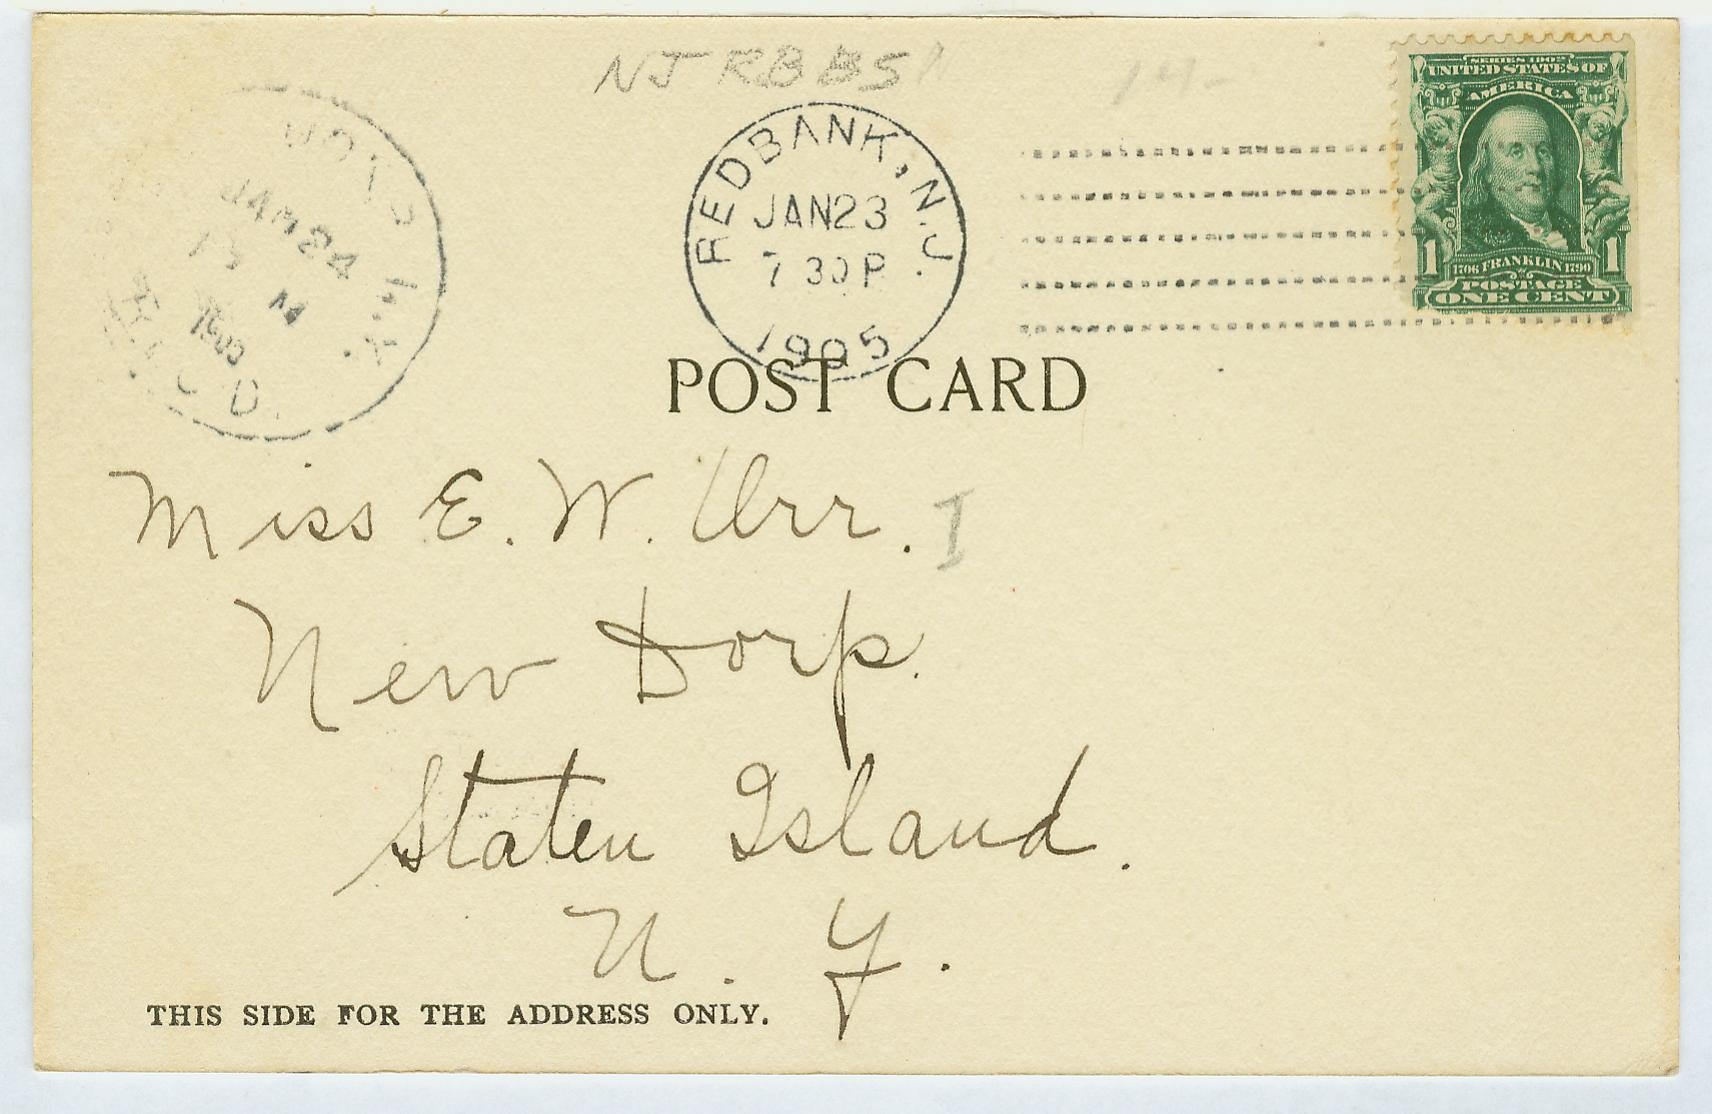 NJ RB B5
SERIES 1902
UNITED STATES OF
AMERICA
1 1
1706 FRANKLIN 1790
POSTAGE
ONE CENT
REDBANK, N.J.
JAN 23
7 30 P
1905
JAN 24
M
REC'D.
POST CARD
Miss E. W. Orr. I
New Dorp.
Staten Island.
N. Y.
THIS SIDE FOR THE ADDRESS ONLY.